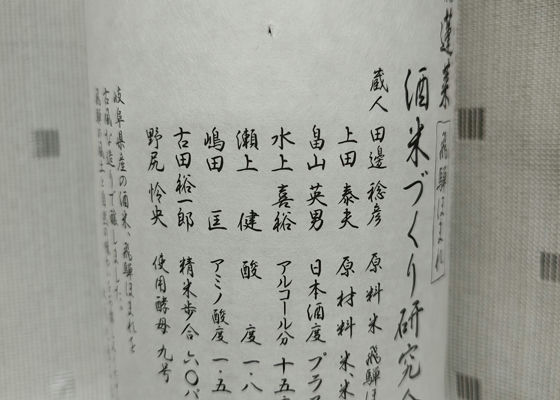 蓬莱 飛騨ほまれ
酒米づくり研究会
蔵人 田邊 稔彦 原料米 飛騨ほ
上田 泰夫 原材料 米、米
畠山 英男 日本酒度 プラ
水上 喜裕 アルコール分 十五
瀬上 健 酸度 一・八
嶋田 匡 アミノ酸度 一・五
古田 裕一郎 精米歩合 六〇
野尻 怜央 使用酵母 九号
岐阜県産の酒米、飛騨ほまれを
古風な造りで醸しました。
飛騨の風土と